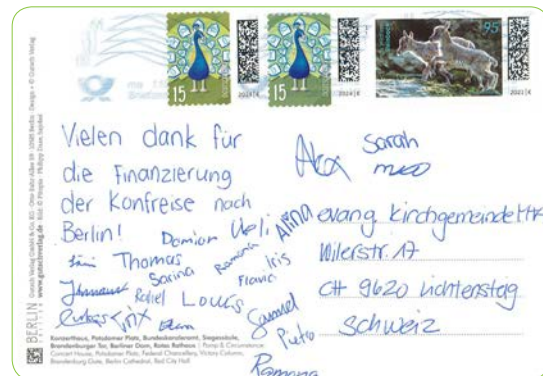 15
15
95
Vielen dank für
die Finanzierung
der Konfreise nach
Berlin!
Damian Ueli Alina
Thomas
Sarina Ramona Iris
Flavia
Rafiel Louis
Samuel
Pietro
Ramona
Alex Sarah
mico
evang. Kirchgemeinde
Wilerstr. 17
CH 9620 Lichtensteig
Schweiz
BERLIN
www.gutschverlag.de
Konzerthaus, Potsdamer Platz, Bundeskanzleramt, Siegessäule,
Brandenburger Tor, Berliner Dom, Rotes Rathaus | Pomp & Circumstance
Concert House, Potsdamer Platz, Federal Chancellery, Victory Column,
Brandenburg Gate, Berlin Cathedral, Red City Hall